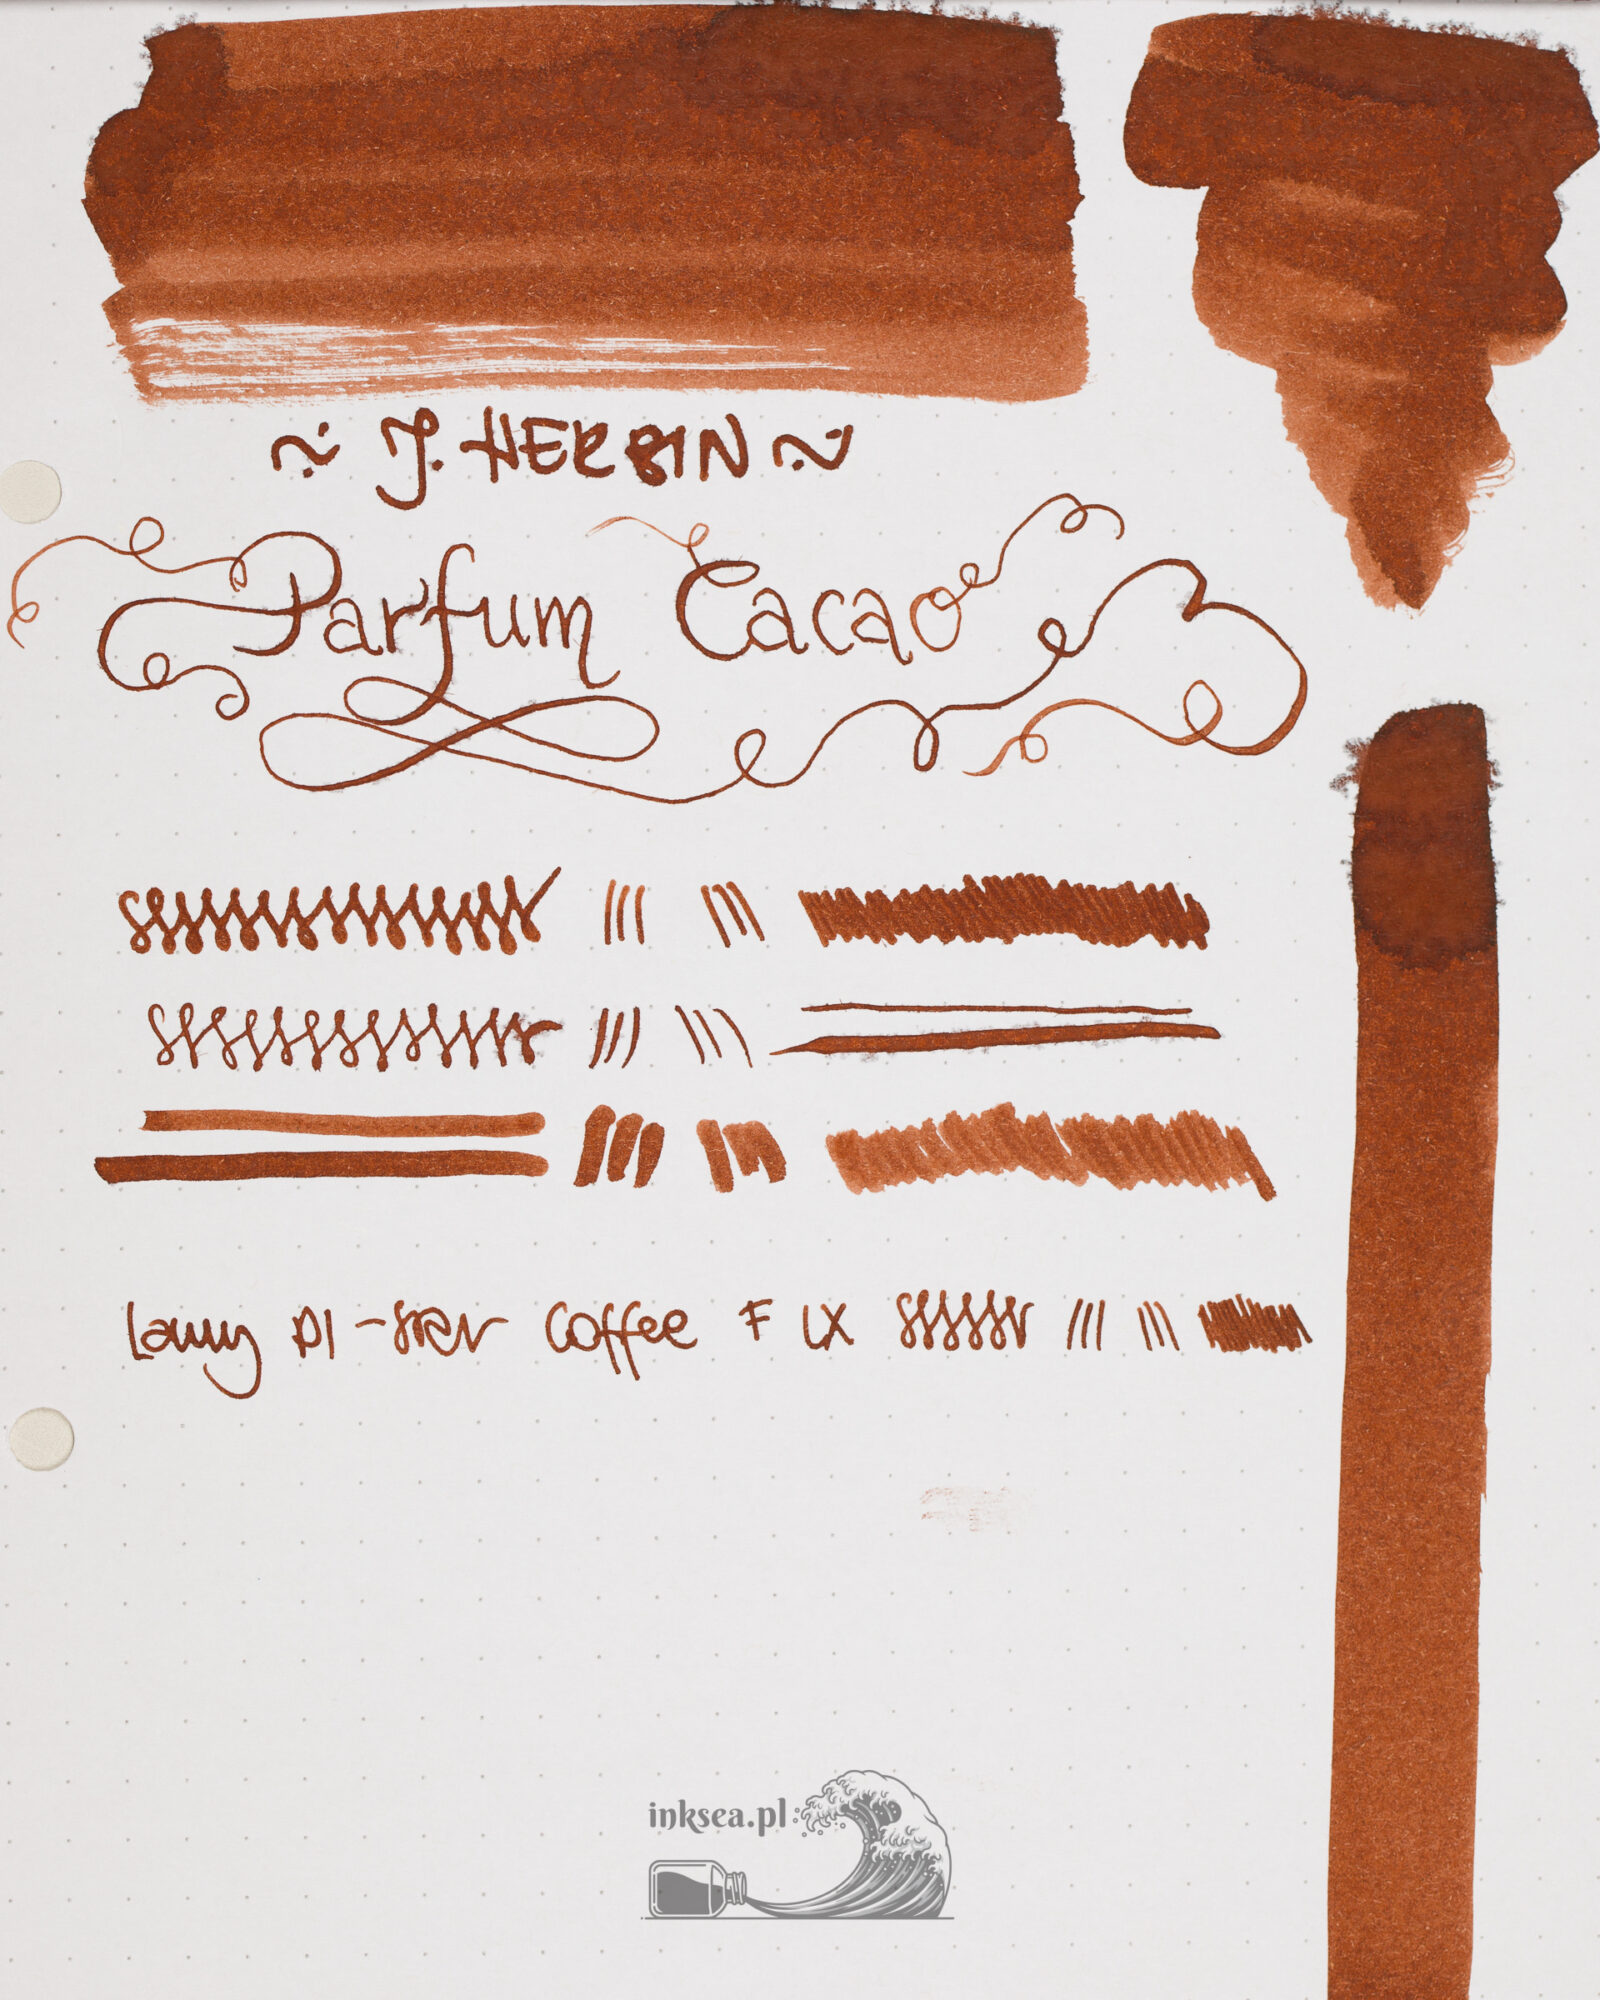 ~ J. HERBIN ~
Parfum Cacao
Lamy Al-Star Coffee F LX
inksea.pl